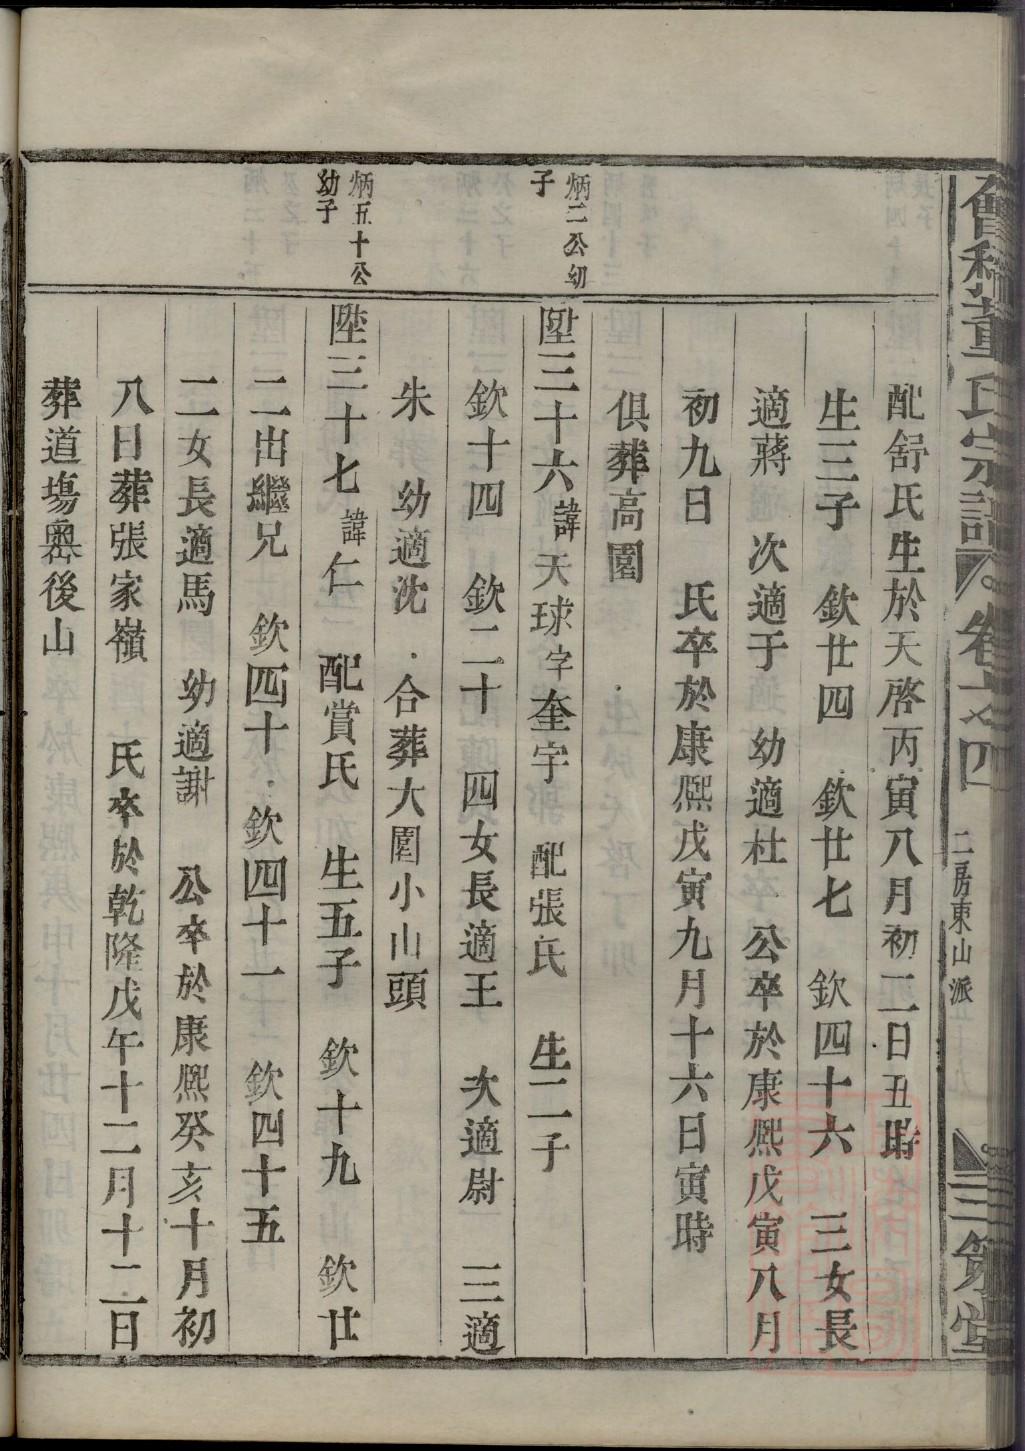 會稽董氏宗譜 卷六之四 二房東山派 三策堂
配舒氏生於天啓丙寅八月初二日丑時
生三子 欽廿四 欽廿七 欽四十六 三女長
適蔣 次適于 幼適杜 公卒於康熈戊寅八月
初九日 氏卒於康熈戊寅九月十六日寅時
俱葬高園
炳二公幼
子
陞三十六諱天球字奎宇 配張氏 生二子
欽十四 欽二十 四女長適王 次適尉 三適
朱 幼適沈 合葬大園小山頭
炳五十公
幼子
陞三十七諱仁 配賞氏 生五子 欽十九 欽廿
二出繼兄 欽四十 欽四十一 欽四十五
二女長適馬 幼適謝 公卒於康熈癸亥十月初
八日葬張家嶺 氏卒於乾隆戊午十二月十二日
葬道塲奧後山